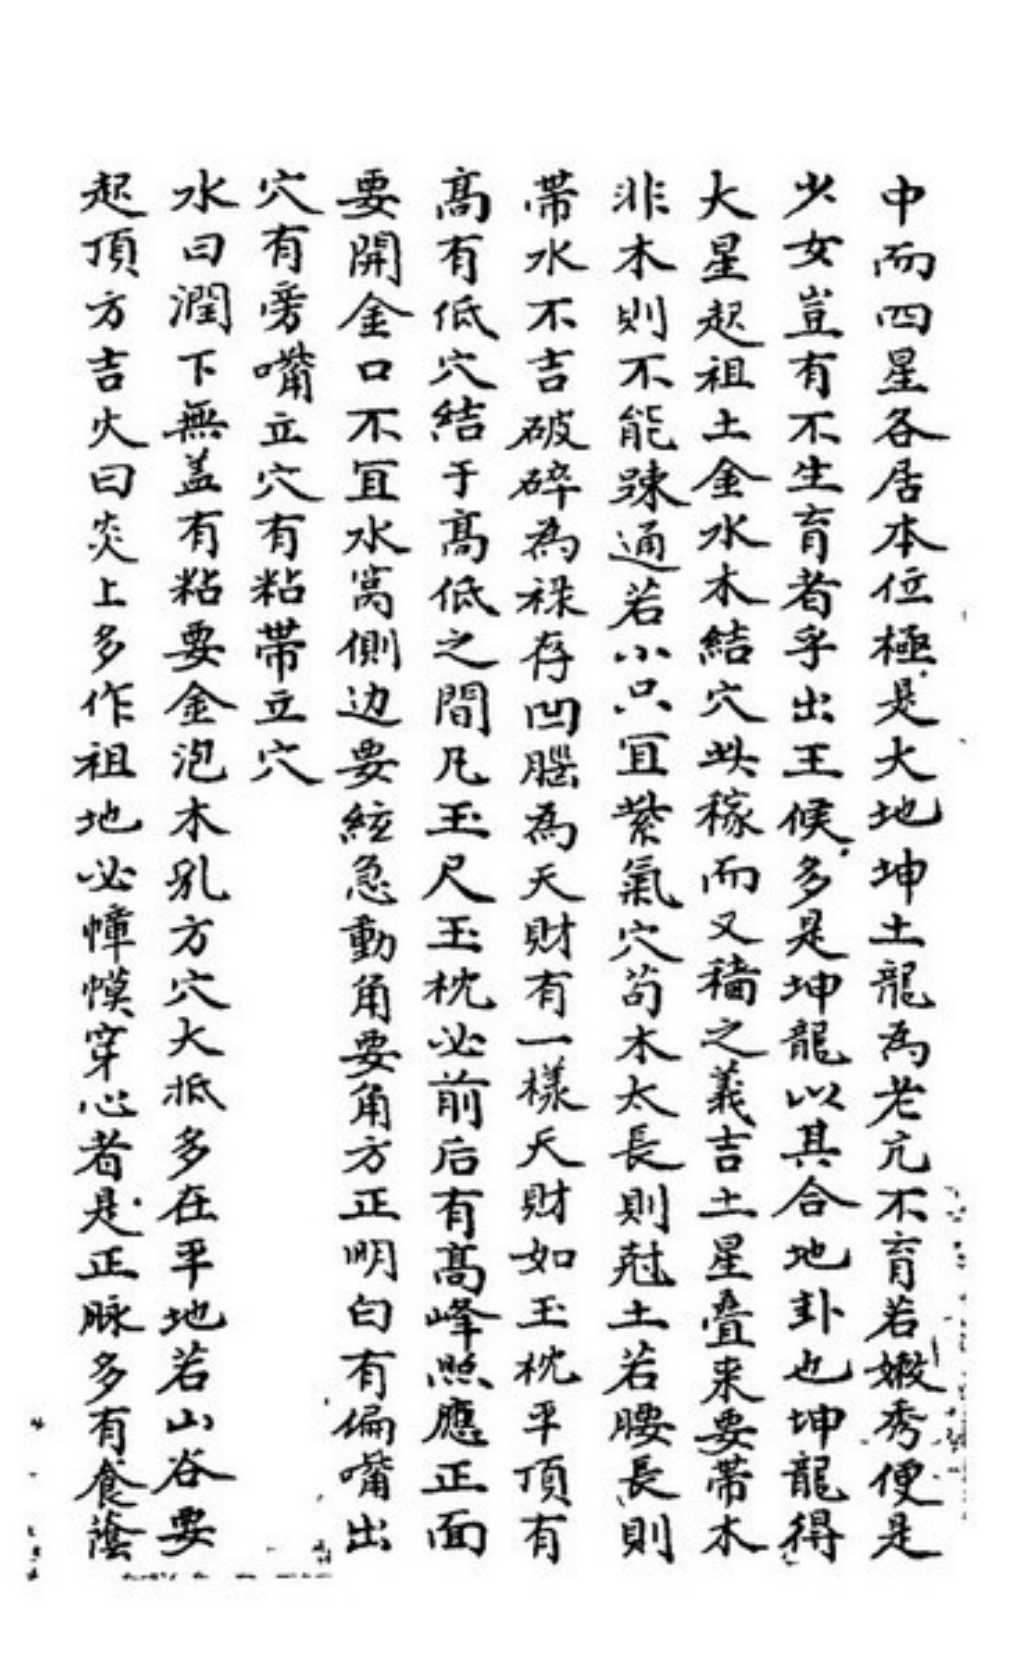 中而四星各居本位極是大地坤土龍為老亢不育若嫩秀便是
少女豈有不生育者乎出王候多是坤龍以其合地卦也坤龍得
大星起祖土金水木結穴此稼而又穡之義吉土星疊来要帶木
非木則不能踈通若小只宜紫氣穴苟木太長則尅土若腰長則
帶水不吉破碎為祿存凹腦為天財有一樣天財如玉枕平頂有
髙有低穴結于髙低之間凡玉尺玉枕必前后有髙峰照應正面
要開金口不宜水窩側边要絃急動角要角方正明白有偏嘴出
穴有旁嘴立穴有粘帶立穴
水曰潤下無盖有粘要金泡木乳方穴大抵多在平地若山谷要
起頂方吉火曰炎上多作祖地必幛幙穿心者是正脉多有倉蔭